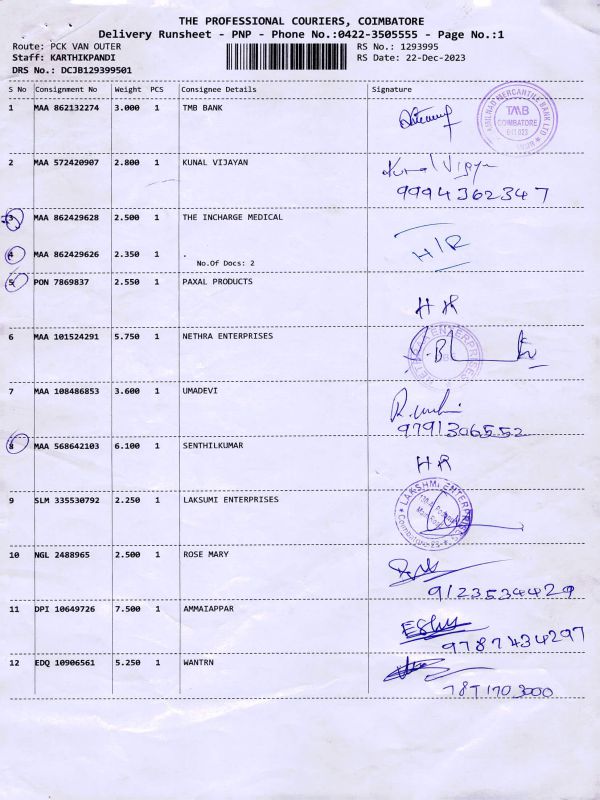 THE PROFESSIONAL COURIERS, COIMBATORE
Delivery Runsheet - PNP - Phone No.:0422-3505555 - Page No.:1
Route: PCK VAN OUTER
RS No.: 1293995
Staff: KARTHIKPANDI
RS Date: 22-Dec-2023
DRS No.: DCJB129399501
S No Consignment No Weight PCS Consignee Details Signature
1 MAA 862132274 3.000 1 TMB BANK
TAMILNAD MERCANTILE BANK LTD
TMB
COIMBATORE
2 MAA 572420907 2.800 1 KUNAL VIJAYAN
Kunal Vijayan
9994362347
3 MAA 862429628 2.500 1 THE INCHARGE MEDICAL
4 MAA 862429626 2.350 1 .
H/R
No.Of Docs: 2
5 PON 7869837 2.550 1 PAXAL PRODUCTS
H R
6 MAA 101524291 5.750 1 NETHRA ENTERPRISES
7 MAA 108486853 3.600 1 UMADEVI
9791306552
8 MAA 568642103 6.100 1 SENTHILKUMAR
H R
9 SLM 335530792 2.250 1 LAKSUMI ENTERPRISES
LAKSHMI ENTERPRISES
10 NGL 2488965 2.500 1 ROSE MARY
9123534429
11 DPI 10649726 7.500 1 AMMAIAPPAR
9787434297
12 EDQ 10906561 5.250 1 WANTRN